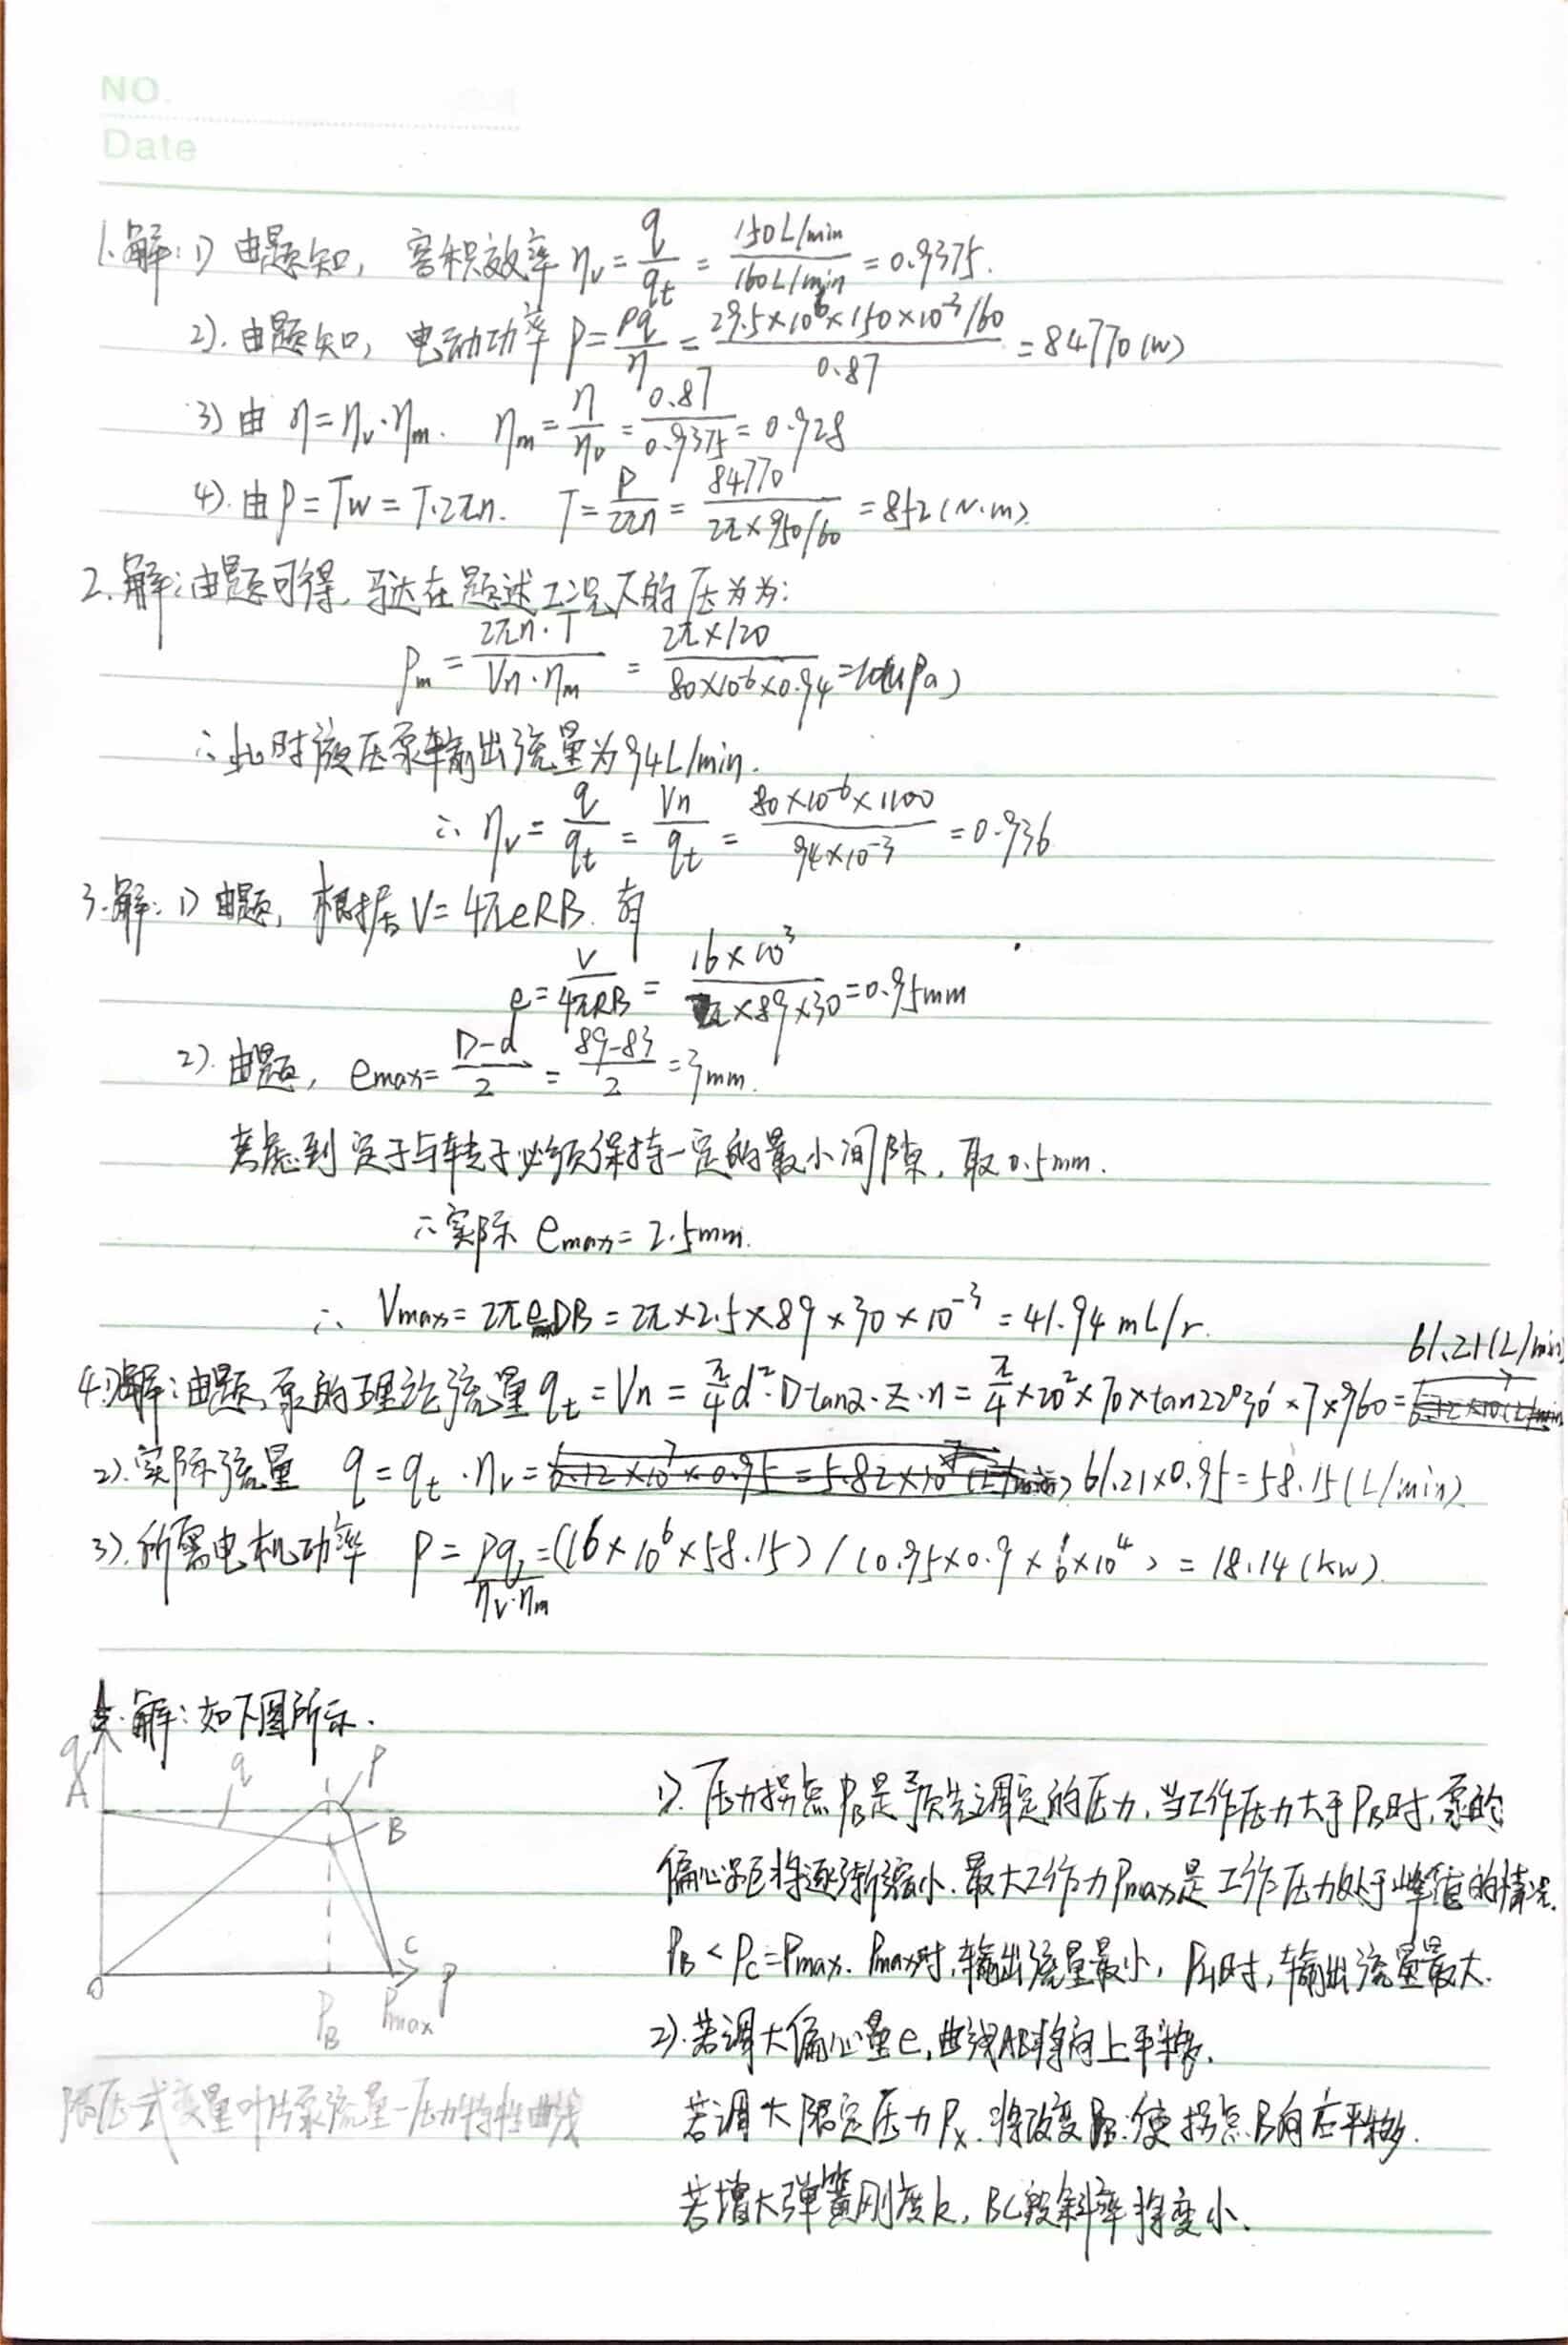 NO.
Date
1.解：1) 由题知，容积效率 ηv = q/qt = 150L/min / 160L/min = 0.9375.
2). 由题知，电动功率 P = pq/η = 29.5×10⁶×150×10⁻³/60 / 0.87 = 84770(w)
3) 由 η=ηv·ηm. ηm = η/ηv = 0.87/0.9375 = 0.928
4). 由P=Tw=T·2πn. T = P/2πn = 84770 / 2π×950/60 = 852(N·m).
2.解：由题可得，马达在题述工况下的压力为：
Pm = 2πn·T / Vn·ηm = 2π×120 / 80×10⁻⁶×0.94 = 10(MPa)
∴此时液压泵输出流量为94L/min.
∴ ηv = q/qt = Vn/qt = 80×10⁻⁶×1100 / 94×10⁻³ = 0.936
3.解：1) 由题，根据V=4πeRB. 有
e = V/4πRB = 16×10³ / 2π×89×30 = 0.95mm
2). 由题，emax = D-d/2 = 89-83/2 = 3mm.
考虑到定子与转子必须保持一定的最小间隙，取0.5mm.
∴实际 emax=2.5mm.
∴ Vmax=2πeDB=2π×2.5×89×30×10⁻³=41.94 mL/r.
4.1)解：由题，泵的理论流量 qt=Vn=π/4 d²·Dtanα·Z·n=π/4×20²×70×tan22°30′×7×960= 61.21(L/min)
2).实际流量 q=qt·ηv= 61.21×0.95=58.15(L/min).
3).所需电机功率 P = pq/ηv·ηm =(16×10⁶×58.15)/(0.95×0.9×6×10⁴)=18.14(kw).
5.解：如下图所示.
q
A
q
P
B
C
O
PB
Pmax
P
限压式变量叶片泵流量-压力特性曲线
1). 压力拐点PB是预先调定的压力，当工作压力大于PB时，泵的
偏心距将逐渐缩小.最大工作力Pmax是工作压力处于峰值的情况.
PB<Pc=Pmax. Pmax时，输出流量最小，PA时，输出流量最大.
2).若调大偏心量e,曲线AB将向上平移.
若调大限定压力Px.将改变PB.使拐点B向右平移.
若增大弹簧刚度k，BC段斜率将变小.